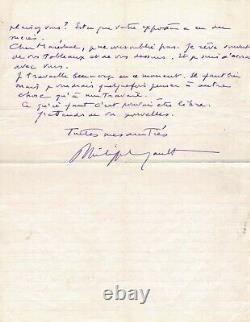 plaisez-vous? Est-ce que votre exposition a eu du
succès?
Cher Maréchal, que n'oubliez pas. Je rêve souvent
de vos tableaux et de vos dessins. Et je suis d'accord
avec vous.
Je travaille beaucoup en ce moment. Il faut bien
mais je voudrais quelquefois penser à autre
chose qu'à un travail.
Ce qu'il faut c'est pouvoir être libre.
J'attends de vos nouvelles.
Toutes mes amitiés